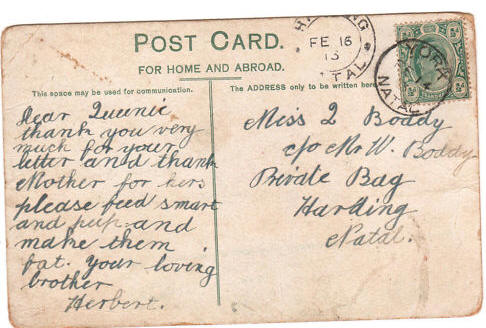 POST CARD.
FOR HOME AND ABROAD.
This space may be used for communication.
The ADDRESS only to be written here
HARDING
FE 16
13
NATAL
YORK
NATAL
½d
½d
Dear Queenie
thank you very
much for your
letter and thank
Mother for hers
please feed smart
and peep and
make them
fat. Your loving
brother
Herbert.
Miss Q Boddy
c/o Mr W. Boddy
Private Bag
Harding
Natal.